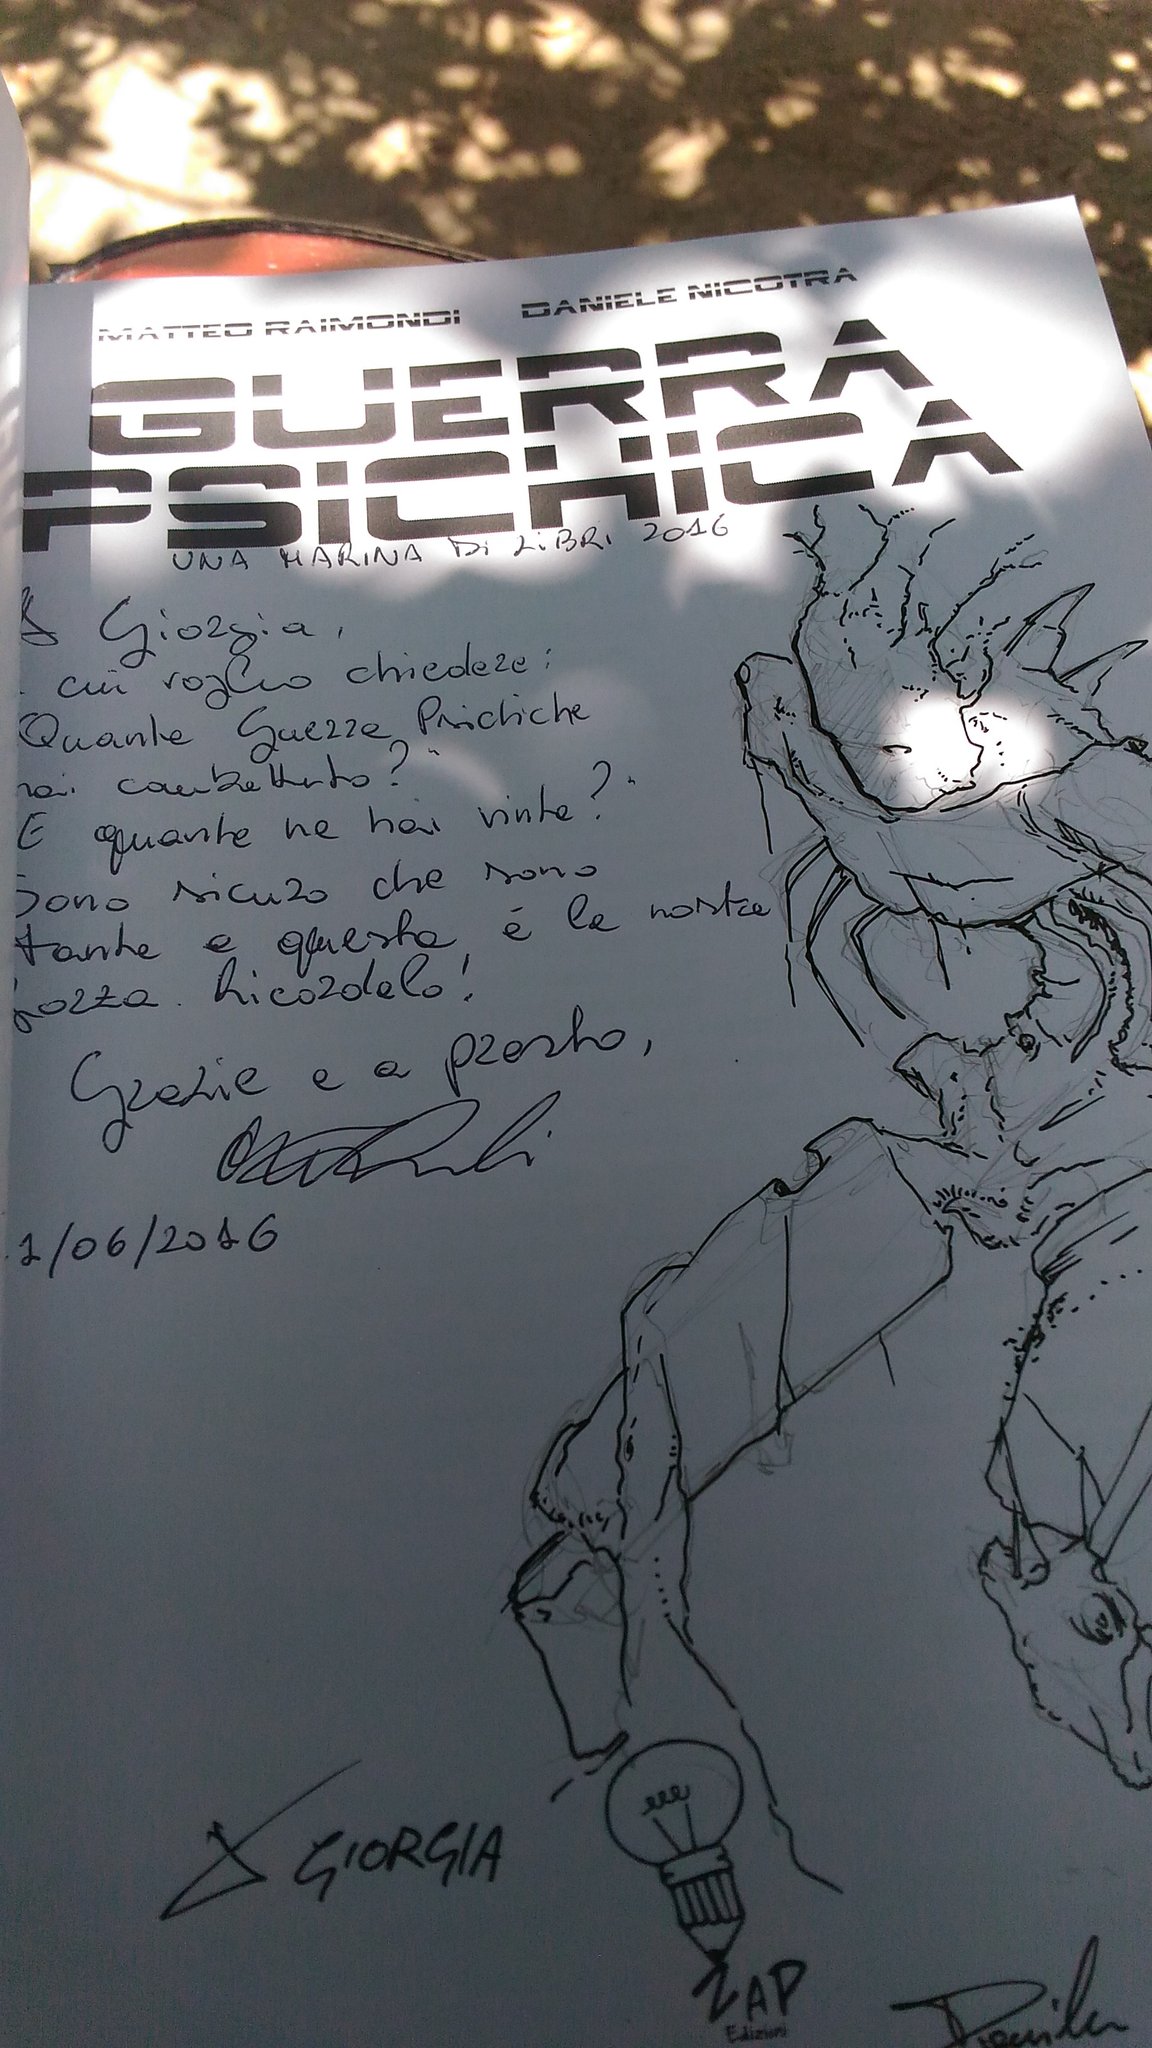 MATTEO RAIMONDI DANIELE NICOTRA
GUERRA
PSICHICA
UNA MARINA DI LIBRI 2016
A Giorgia,
cui voglio chiedere:
Quante Guerre Psichiche
hai combattuto?"
E quante ne hai vinte?"
Sono sicuro che sono
tante e questa è la nostra
forza. Ricordalo!
Grazie e a presto,
1/06/2016
A GIORGIA
ZAP
Edizioni